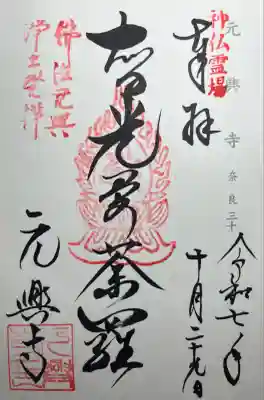 元興寺 奈良三十
神仏霊場
奉拝
令和七年
十月二十九日
智光曼荼羅
佛法元興
浄土発祥
元興寺